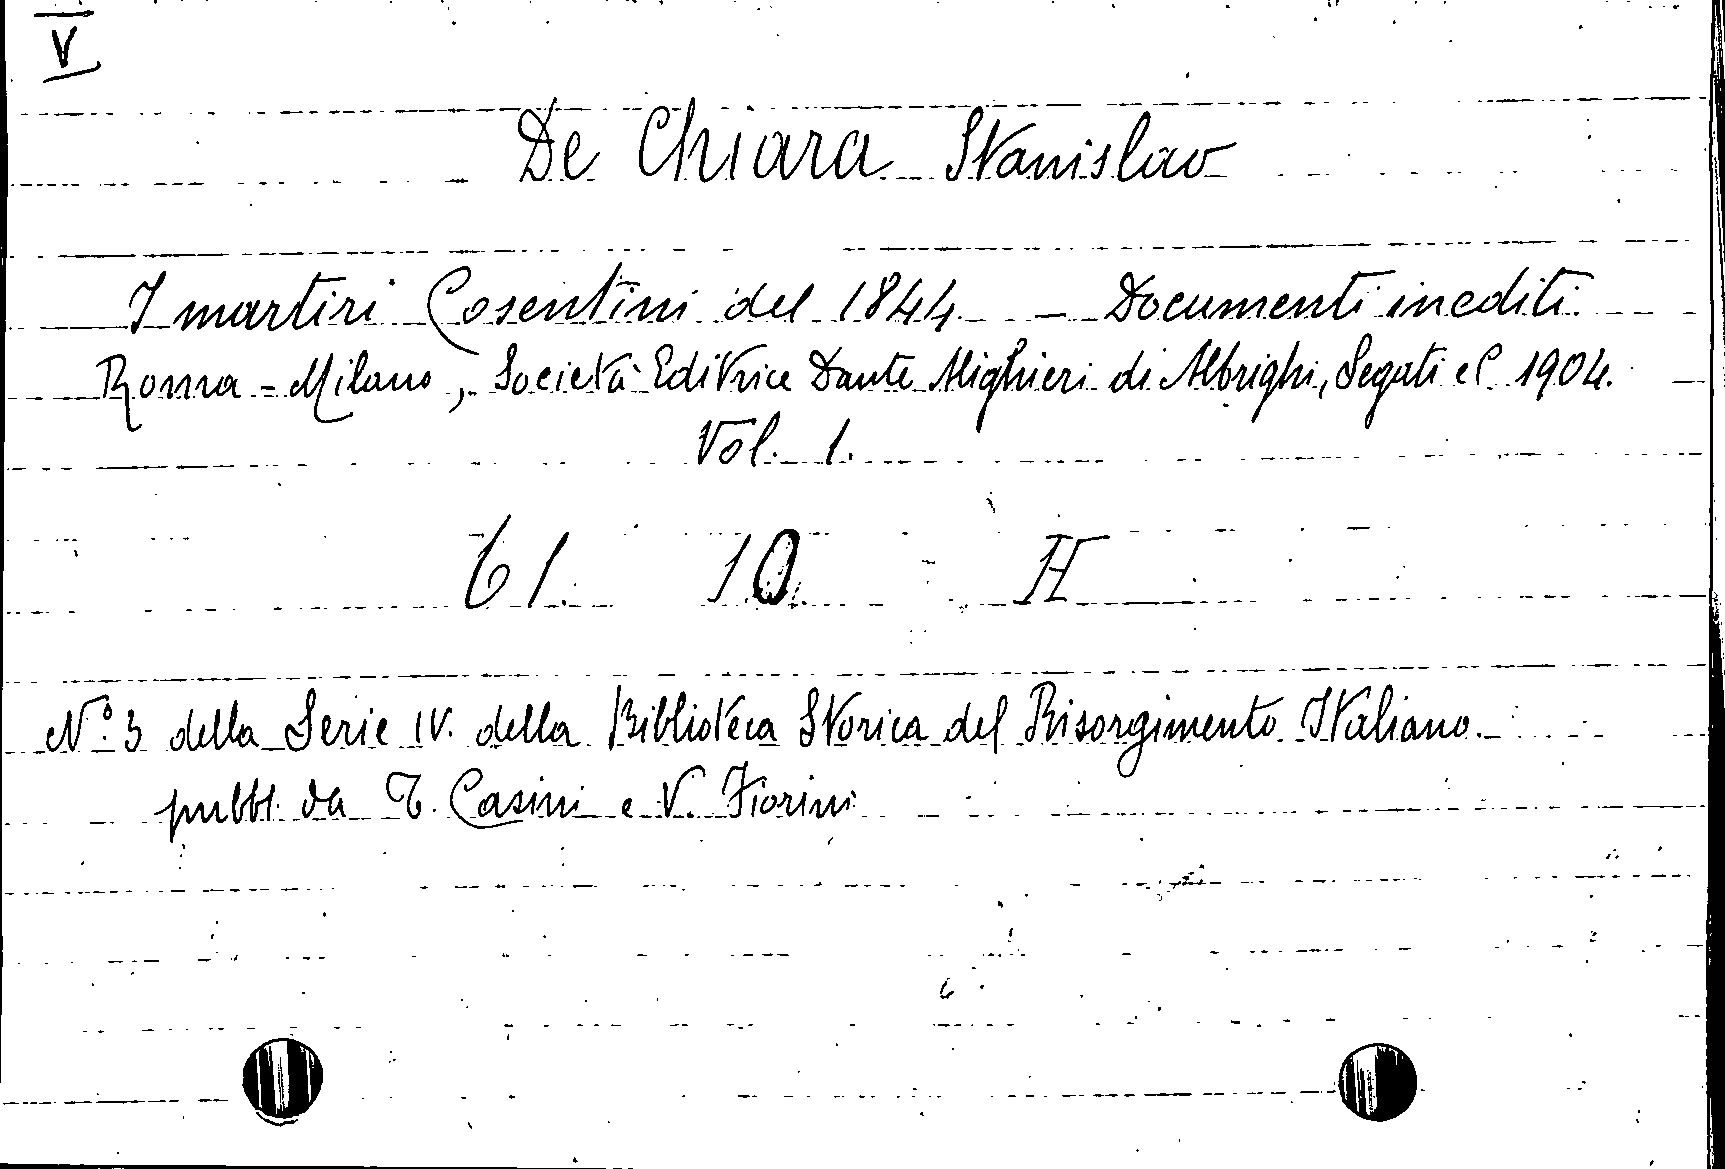 V
De Chiara Stanislao
I martiri Cosentini del 1844 - Documenti inediti.
Roma - Milano, Società Editrice Dante Alighieri di Albrighi, Segati e C. 1904.
Vol. 1.
61. 10. H
N.º 3 della Serie IV. della Biblioteca Storica del Risorgimento Italiano.
pubbl. da T. Casini e V. Fiorini